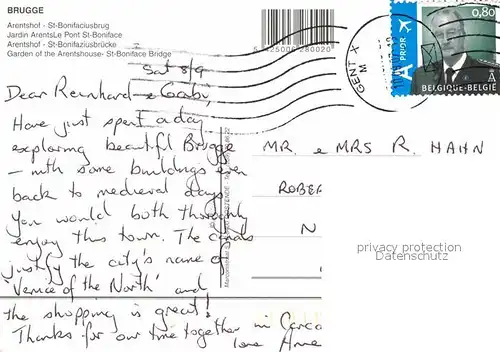 BRUGGE
Arentshof - St-Bonifaciusbrug
Jardin ArentsLe Pont St-Boniface
Arentshof - St-Bonifaziusbrücke
Garden of the Arentshouse- St-Boniface Bridge
5 425006 280020
GENT X
M
A PRIOR
0,80
A
BELGIQUE-BELGIË
Sat 8/9
Dear Reinhard & Gabi,
Have just spent a day
exploring beautiful Brugge
- with some buildings even
back to medieval days.
You would both thoroughly
enjoy this town. The canals
justify the city's name of
'Venice of the North' and
the shopping is great!
Thanks for our time together in
love
MR. & MRS R. HAHN
ROBER
N
privacy protection
Datenschutz